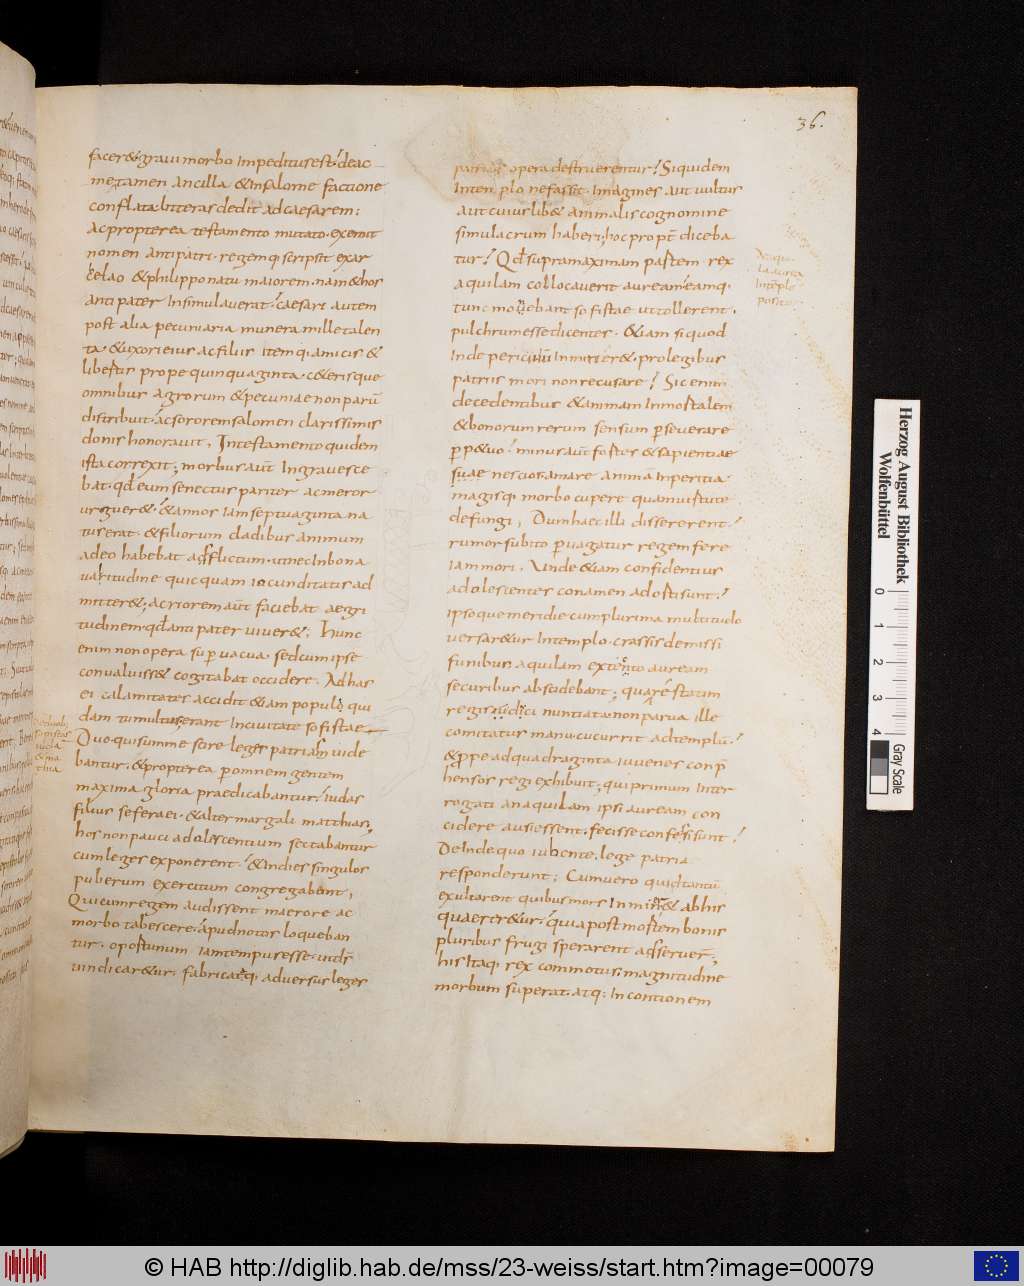 36.
facer& gravi morbo Impeditus est. deac
me tamen ancilla &Insalome factione
conflata litteras dedit adcaesarem;
Ac propterea testamento mutato. exemit
nomen antipatri. regemq; scripsit &ar
chelao &philippo natu maiorem. nam &hos
antipater Insimulaverat. caesari autem
post alia pecuniaria munera mille talen
ta. &uxori eius acfiliis itemq; amicis &
libertis prope quinquaginta. c&erisque
omnibus agrorum & pecuniae non parū
distribuit. ac sororem salomen clarissimis
donis honoravit. In testamento quidem
ista correxit; morbus aut Ingravesce
bat. qđ eum senectus pariter ac meror
urguer&. &annos iam septuaginta na
tus erat. &filiorum cladibus animum
adeo habebat afflictum. ut nec Inbona
valitudine quicquam iocunditatis ad
mitter&; acriorem aut faciebat aegri
tudinem. qđ antipater viver&; hunc
enim non opera supvacua. sed cum ipse
convaluiss& cogitabat occidere. Ad has
ei calamitates accidit &iam populi qui
dam tumultus; erant Incivitate sofistae
Duo. qui summe scire leges patrias vide
bantur. &propterea p omnem gentem
maxima gloria praedicabantur. iudas
filius seferaei. &alter margali matthias;
hos non pauci adolescentium sectabantur
cum leges exponerent. &Indies singulos
puberum exercitum congregabant;
Qui cum regem audissent maerore ac
morbo tabescere. apud notos loqueban
tur. oportunum iam tempus esse. ut ds
vindicar&ur. fabricataq; adversus leges
patrias opera destruerentur. Siquidem
Inten plo nefas sit. Imagines aut vultus
aut cuiuslib& animalis cognomine
simulacrum haberi; hoc propt diceba
tur. Qđ supra maximam portem rex
aquilam collocaverit auream. eamq;
tunc monebant sofistae ut tollerent.
pulchrum esse dicentes. &iam siquod
Inde periculū Inmitter&. pro legibus
patriis mori non recusare. Sic enim
decedentibus &animam Inmortalem
&bonorum rerum sensum pseverare
pp&uo. minus aut fortes &sapientiae
suae nescios. amare animā Inperitia
magisq; morbo cupere quam virtute
defungi. Dum haec illi dissererent.
rumor subito pvagatur regem fere
iam mori. Unde &iam confidentius
adolescentes conamen adorti sunt.
ipsoque meridie cum plurima multitudo
versar&ur Intemplo. crassis demissi
funibus aquilam extento auream
securibus abscidebant; quare statim
regis iudici nuntiata. non parva ille
comitatus manu. cucurrit ad templū.
&prope ad quadraginta iuvenes conp
hensos regi exhibuit; qui primum Inter
rogati an aquilam ipsi auream con
cidere ausi essent. fecisse confessi sunt.
Deinde quo iubente. lege patria
responderunt; Cum vero quid tantū
exultarent quibus mors Inmin& abhis
quaerer&ur. quia post mortem bonis
pluribus frugi sperarent adseruer;
his Itaq; rex commotus. magnitudine
morbum superat. atq; In contionem
Herzog August Bibliothek
Wolfenbüttel
0 1 2 3 4
Gray Scale
© HAB http://diglib.hab.de/mss/23-weiss/start.htm?image=00079